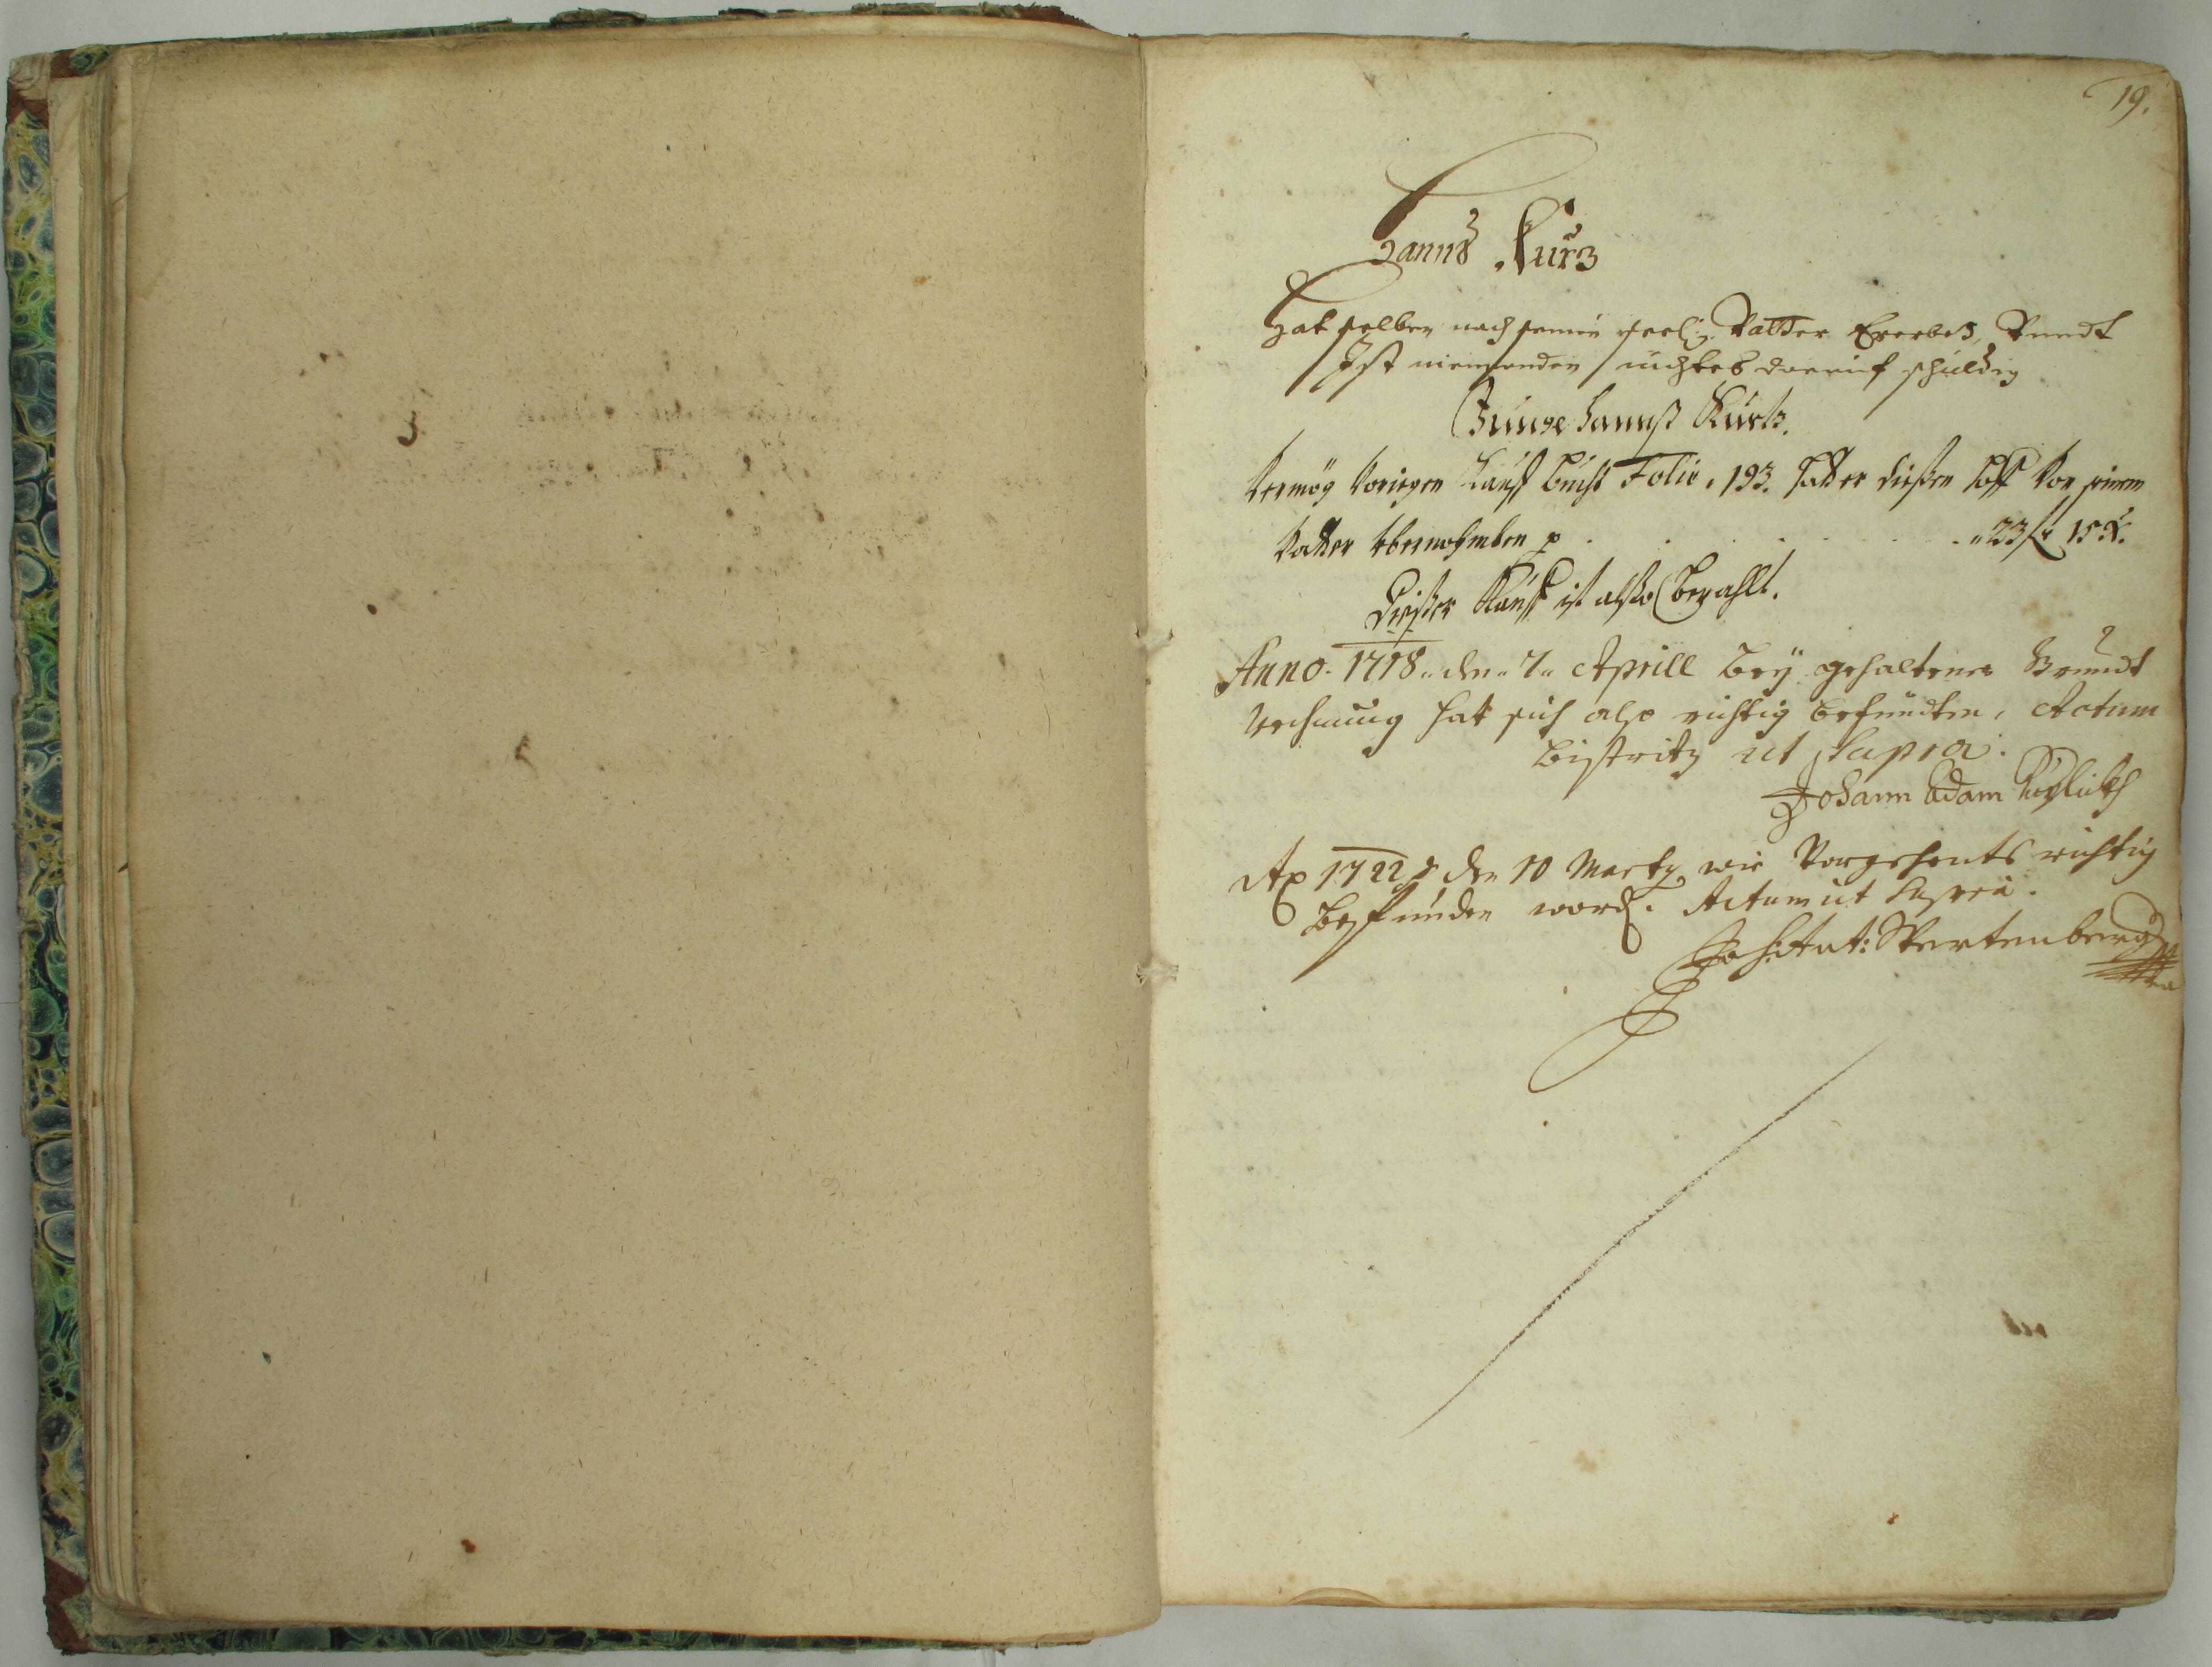 19.
Hannß Kurz
Hat selben nach seinen seelig: Vatter Ererbet, Vnndt
Ist niemanden nichtes darauf schuldig
Junge Hannß Kurtz.
Vermög Vorigen Kauff buch Folio 193. hatt er dießen hoff Von seinem
Vatter vbernohmben p . . . . . . 23 ß 15 x.
Dießer Kauff ist alßo Bezahlt.
Anno 1718 den 7 Aprill Bey gehaltener Grundt
Rechnung hat sich also richtig befundten, Actum
Bistritz ut supra.
Johann Adam
Ao 1722 den 10 Marty wie Vorgehents richtig
Befunden word. Actum ut Supra.
Joh: Ant: Wertenberg